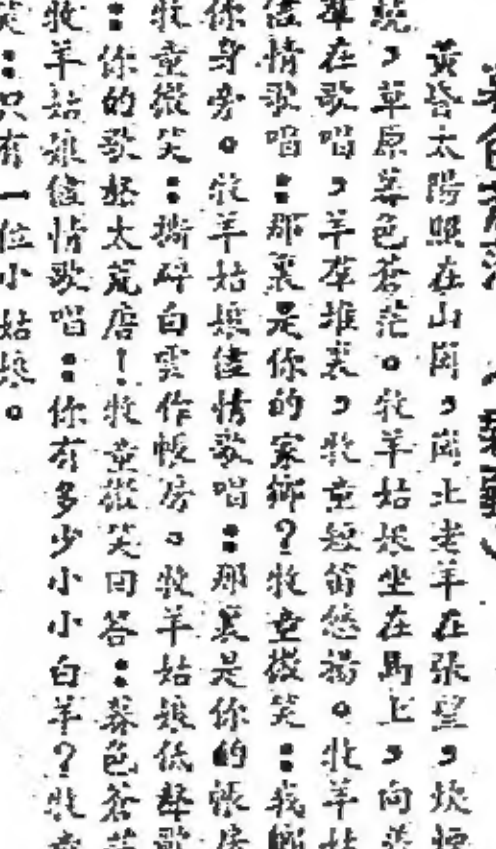 暮色蒼茫
黃昏太陽照在山崗，崗上老羊在張望，炊煙
繞，草原暮色蒼茫。牧羊姑娘坐在馬上，向羊
羣在歌唱，羊羣堆裏，牧童短笛悠揚。牧羊姑
儘情歌唱：那裏是你的家鄉？牧童微笑：我鄉
你身旁。牧羊姑娘儘情歌唱：那裏是你的帳房
牧童微笑：撕碎白雲作帳房。牧羊姑娘低聲歌
：你的歌聲太荒唐！牧童微笑回答：暮色蒼茫
牧羊姑娘儘情歌唱：你有多少小小白羊？牧童
笑：只有一位小姑娘。